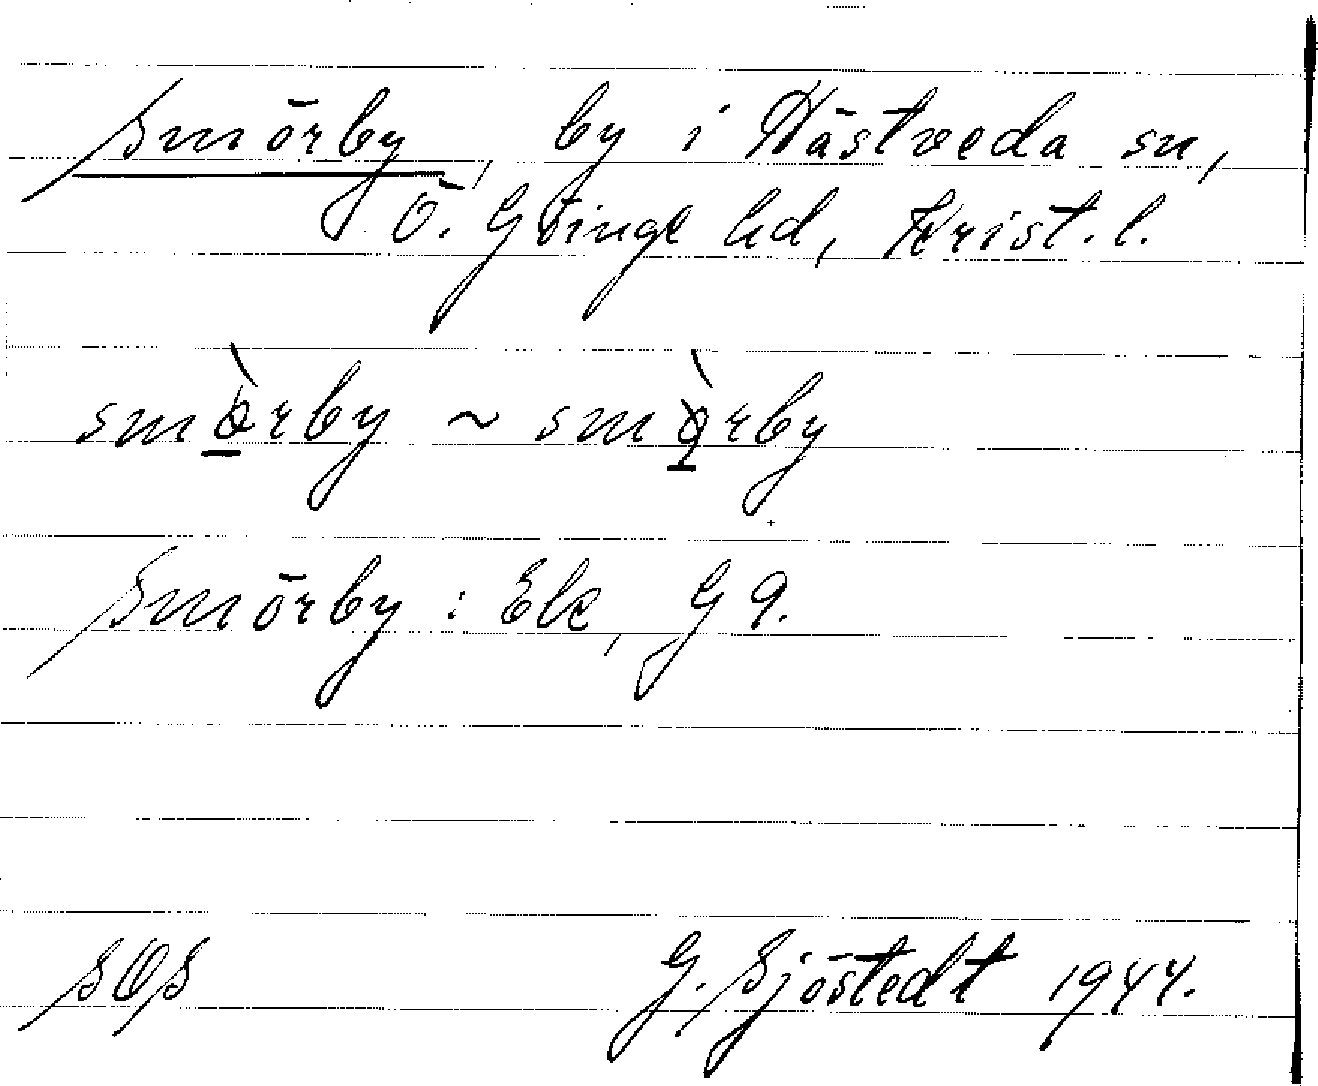 Smörby, by i Hästveda sn,
Ö. Göinge hd, Krist. l.
smö̀rby ~ smö̀rby
Smörby : Ek, G 9.
SOS G. Sjöstedt 1944.